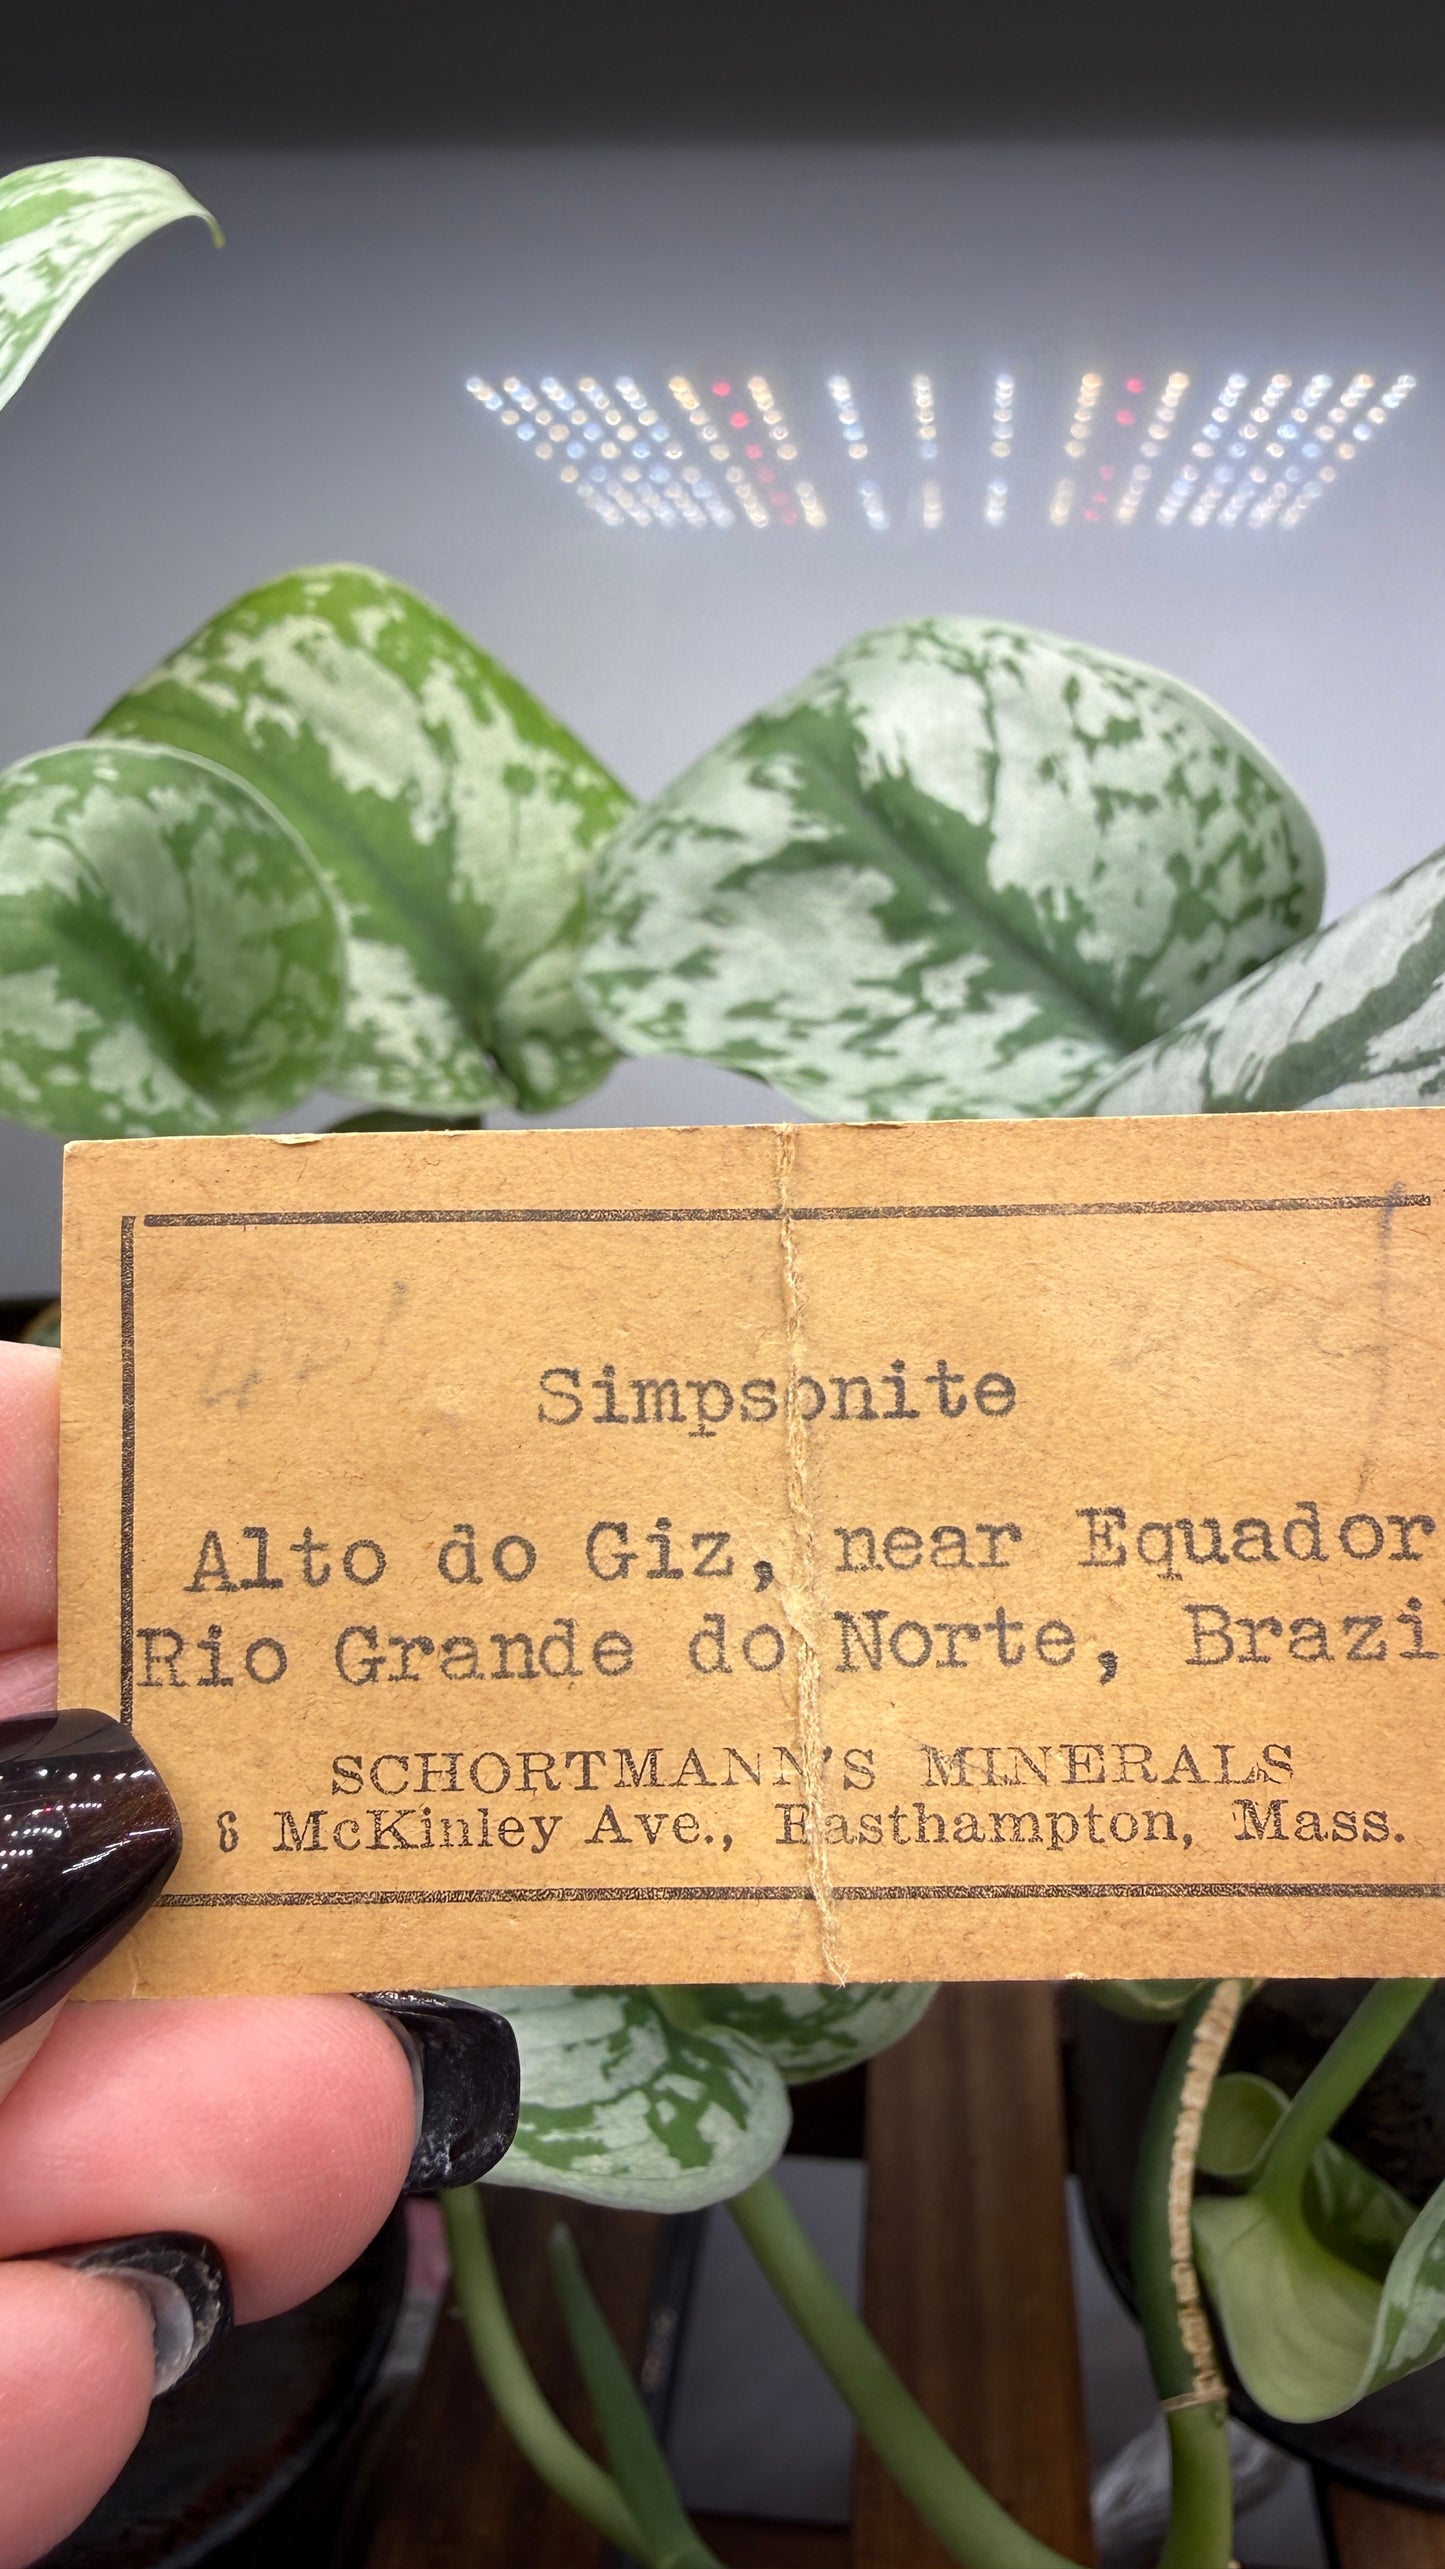 Simpsonite
Alto do Giz, near Equador
Rio Grande do Norte, Brazi
SCHORTMANN'S MINERALS
6 McKinley Ave., Easthampton, Mass.